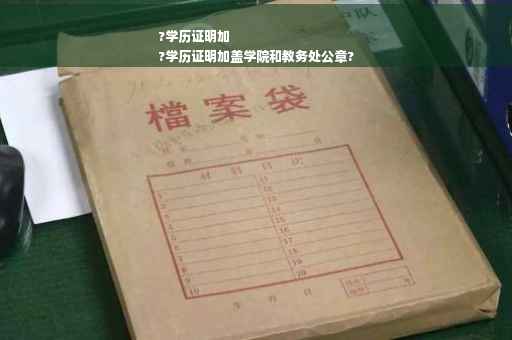 ?学历证明加
?学历证明加盖学院和教务处公章?
檔案袋
材料目次
1 11
2 12
3 13
4 14
5 15
6 16
7 17
8 18
9 19
10 20
年 月 日